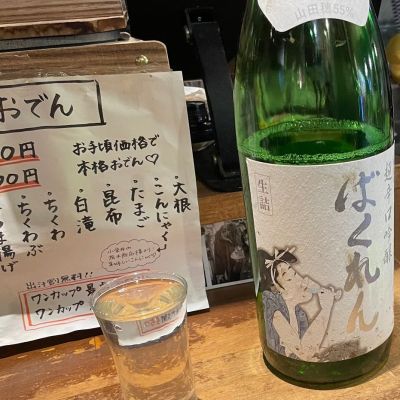 おでん
0円
00円
お手頃価格で
本格おでん♡
・大根
・こんにゃく
・たまご
・昆布
・白滝
・ちくわ
・ちくわぶ
揚げ
出汁割無料!!
ワンカップ
ワンカップ
山田穂55%
生詰
超辛口吟醸
ばくれん